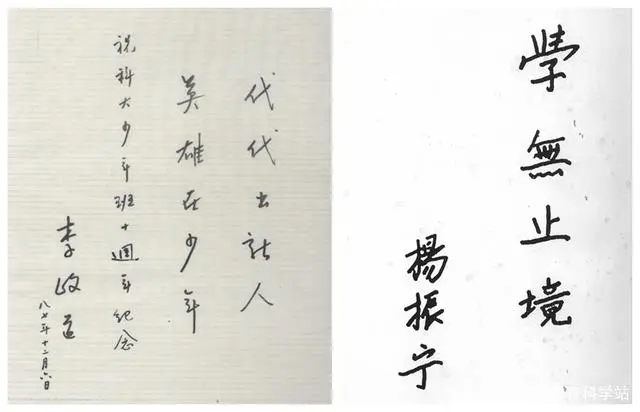 代代出新人
英雄在少年
祝科大少年班十週年紀念
李政道
八七年十二月六日
學無止境
楊振宁
科学站